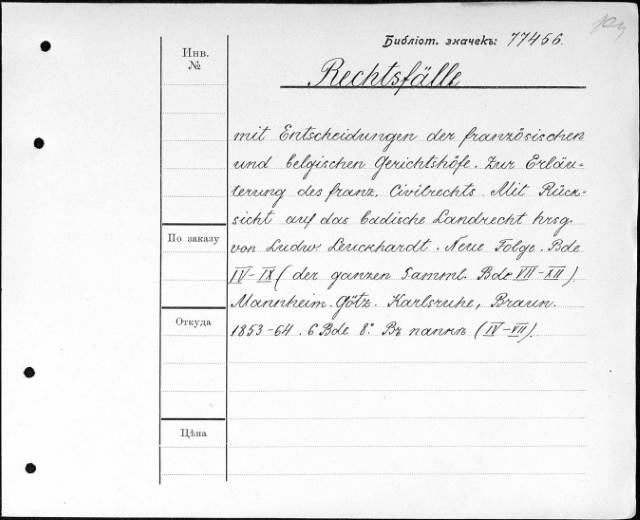 Библіот. значекъ: 77456.
Инв.
№
Rechtsfälle
mit Entscheidungen der französischen
und belgischen Gerichtshöfe. Zur Erläu-
terung des franz. Civilrechts. Mit Rück-
sicht auf das badische Landrecht hrsg.
По заказу
von Ludw. Leuckhardt. Neue Folge. Bde
IV-IX (der ganzen Samml. Bde VII-XII).
Mannheim. Götz. Karlsruhe, Braun.
Откуда
1853-64. 6 Bde 8°. Въ папкѣ (IV-VII).
Цѣна